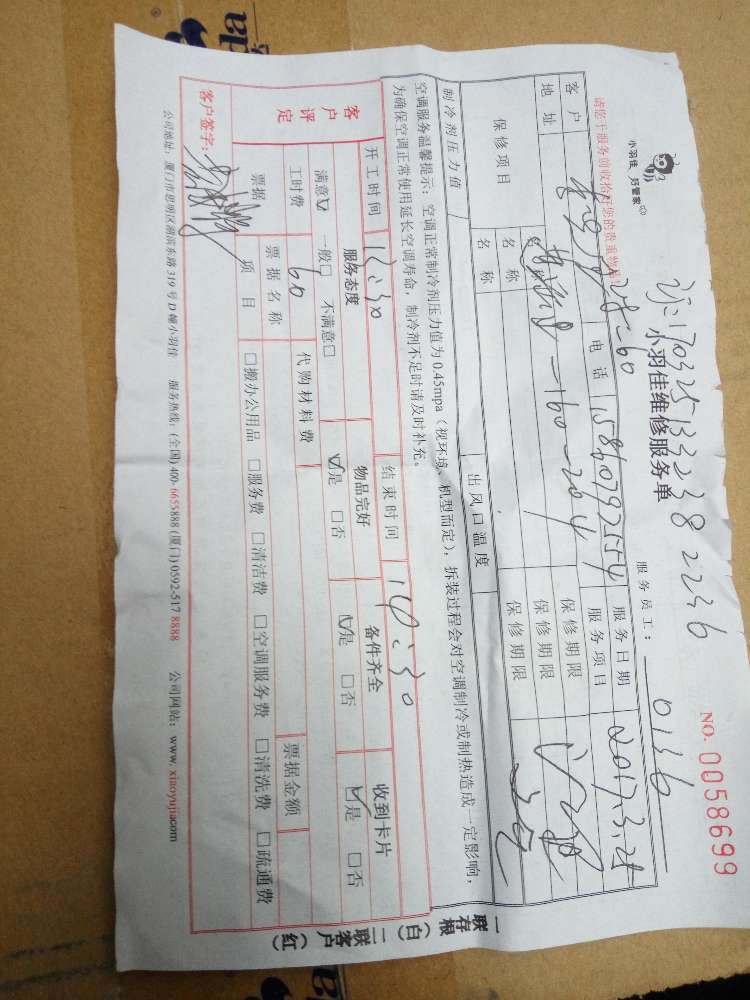 小羽佳 好管家
NO. 0058699
小羽佳维修服务单
请您于服务前收拾好您的贵重物品
服务员工： 0136
客户 电话 15860792554 服务日期 2017.3.25
地址 160-204 服务项目
保修项目 名称 保修期限
名称 保修期限
保修期限
制冷剂压力值 出风口温度
空调服务温馨提示：空调正常制冷剂压力值为0.45mpa（视环境、机型而定），拆装过程会对空调制冷或制热造成一定影响，
为确保空调正常使用延长空调寿命，制冷剂不足时请及时补充。
开工时间 12:30 结束时间 14:30
客户评定 服务态度 物品完好 备件齐全 收到卡片
满意☑ 一般□ 不满意□ ☑是 □否 ☑是 □否 ☑是 □否
工时费 60 代购材料费
票据 票据名称 票据金额
项目 □搬办公用品 □服务费 □清洁费 □空调服务费 □清洗费 □疏通费
客户签字：
公司地址：厦门市思明区湖滨东路319号D幢小羽佳 服务热线：(全国)400-6655888 (厦门)0592-517 8888 公司网站：www.xiaoyujia.com
一联存根（白）二联客户（红）